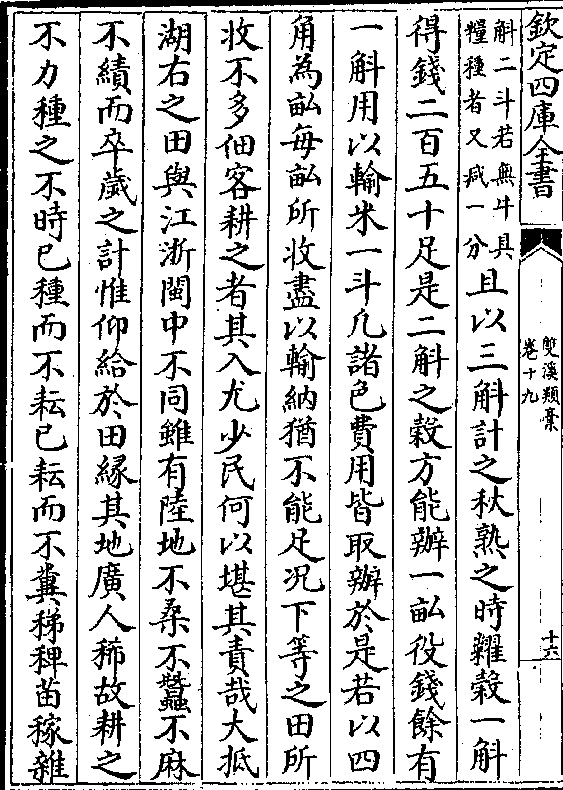 欽定四庫全書
雙溪類稾
卷十九
十六
斛二斗若無牛具
糧種者又減一分
且以三斛計之秋熟之時糶穀一斛
得錢二百五十足是二斛之穀方能辦一畝役錢餘有
一斛用以輸米一斗凡諸色費用皆取辦於是若以四
角為畝每畝所收盡以輸納猶不能足况下等之田所
收不多佃客耕之者其入尤少民何以堪其責哉大抵
湖右之田與江浙閩中不同雖有陸地不桑不蠶不麻
不績而卒歲之計惟仰給於田緣其地廣人稀故耕之
不力種之不時已種而不耘已耘而不糞稊稗苗稼雜